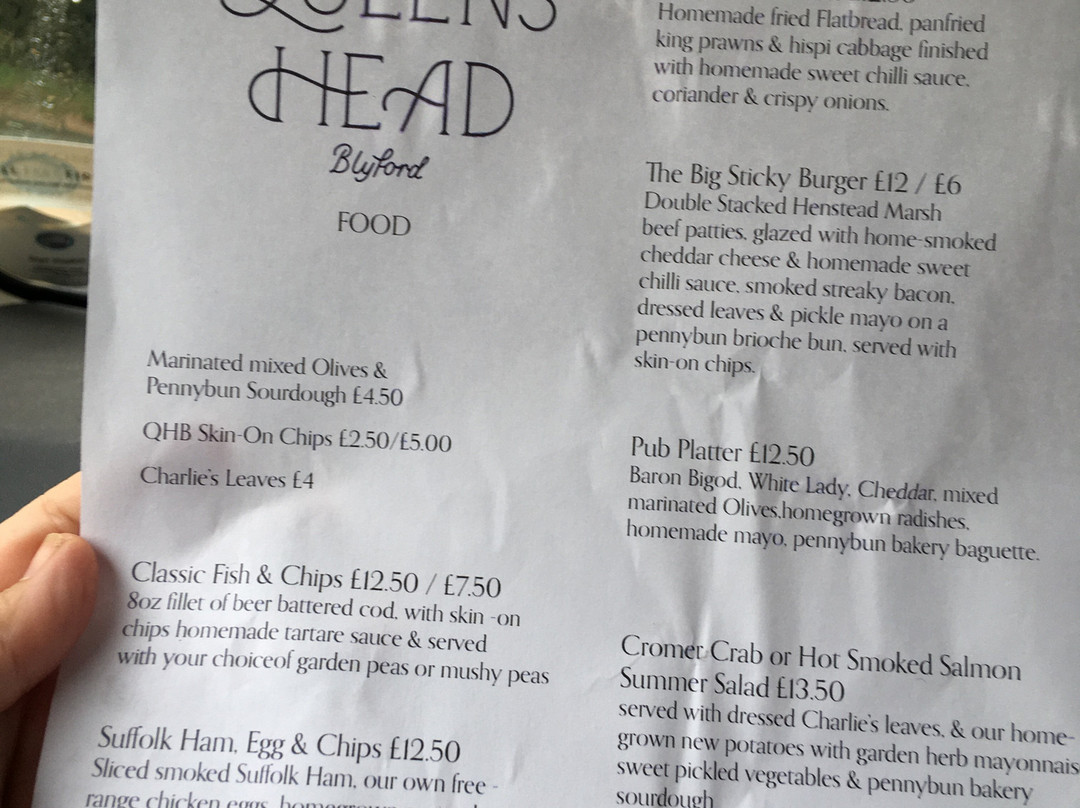 QUEENS
HEAD
Blyford
FOOD
Marinated mixed Olives &
Pennybun Sourdough £4.50
QHB Skin-On Chips £2.50/£5.00
Charlie's Leaves £4
Classic Fish & Chips £12.50 / £7.50
8oz fillet of beer battered cod, with skin -on
chips homemade tartare sauce & served
with your choiceof garden peas or mushy peas
Suffolk Ham, Egg & Chips £12.50
Sliced smoked Suffolk Ham, our own free -
range chicken eggs,
Homemade fried Flatbread, panfried
king prawns & hispi cabbage finished
with homemade sweet chilli sauce,
coriander & crispy onions.
The Big Sticky Burger £12 / £6
Double Stacked Henstead Marsh
beef patties, glazed with home-smoked
cheddar cheese & homemade sweet
chilli sauce, smoked streaky bacon,
dressed leaves & pickle mayo on a
pennybun brioche bun, served with
skin-on chips.
Pub Platter £12.50
Baron Bigod, White Lady, Cheddar, mixed
marinated Olives,homegrown radishes,
homemade mayo, pennybun bakery baguette.
Cromer Crab or Hot Smoked Salmon
Summer Salad £13.50
served with dressed Charlie's leaves, & our home-
grown new potatoes with garden herb mayonnais
sweet pickled vegetables & pennybun bakery
sourdough